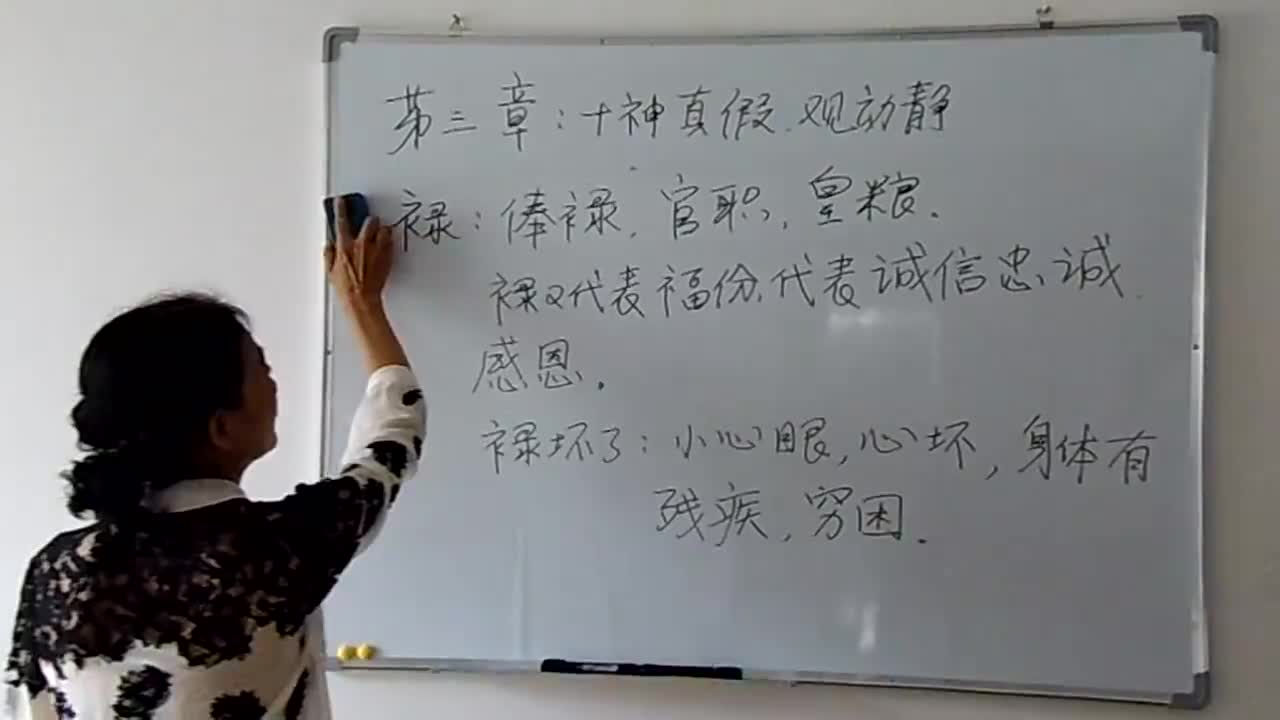 第三章:十神真假.观动静
禄:俸禄,官职,皇粮.
禄又代表福份,代表诚信忠诚
感恩.
禄坏了:小心眼,心坏,身体有
残疾,穷困.